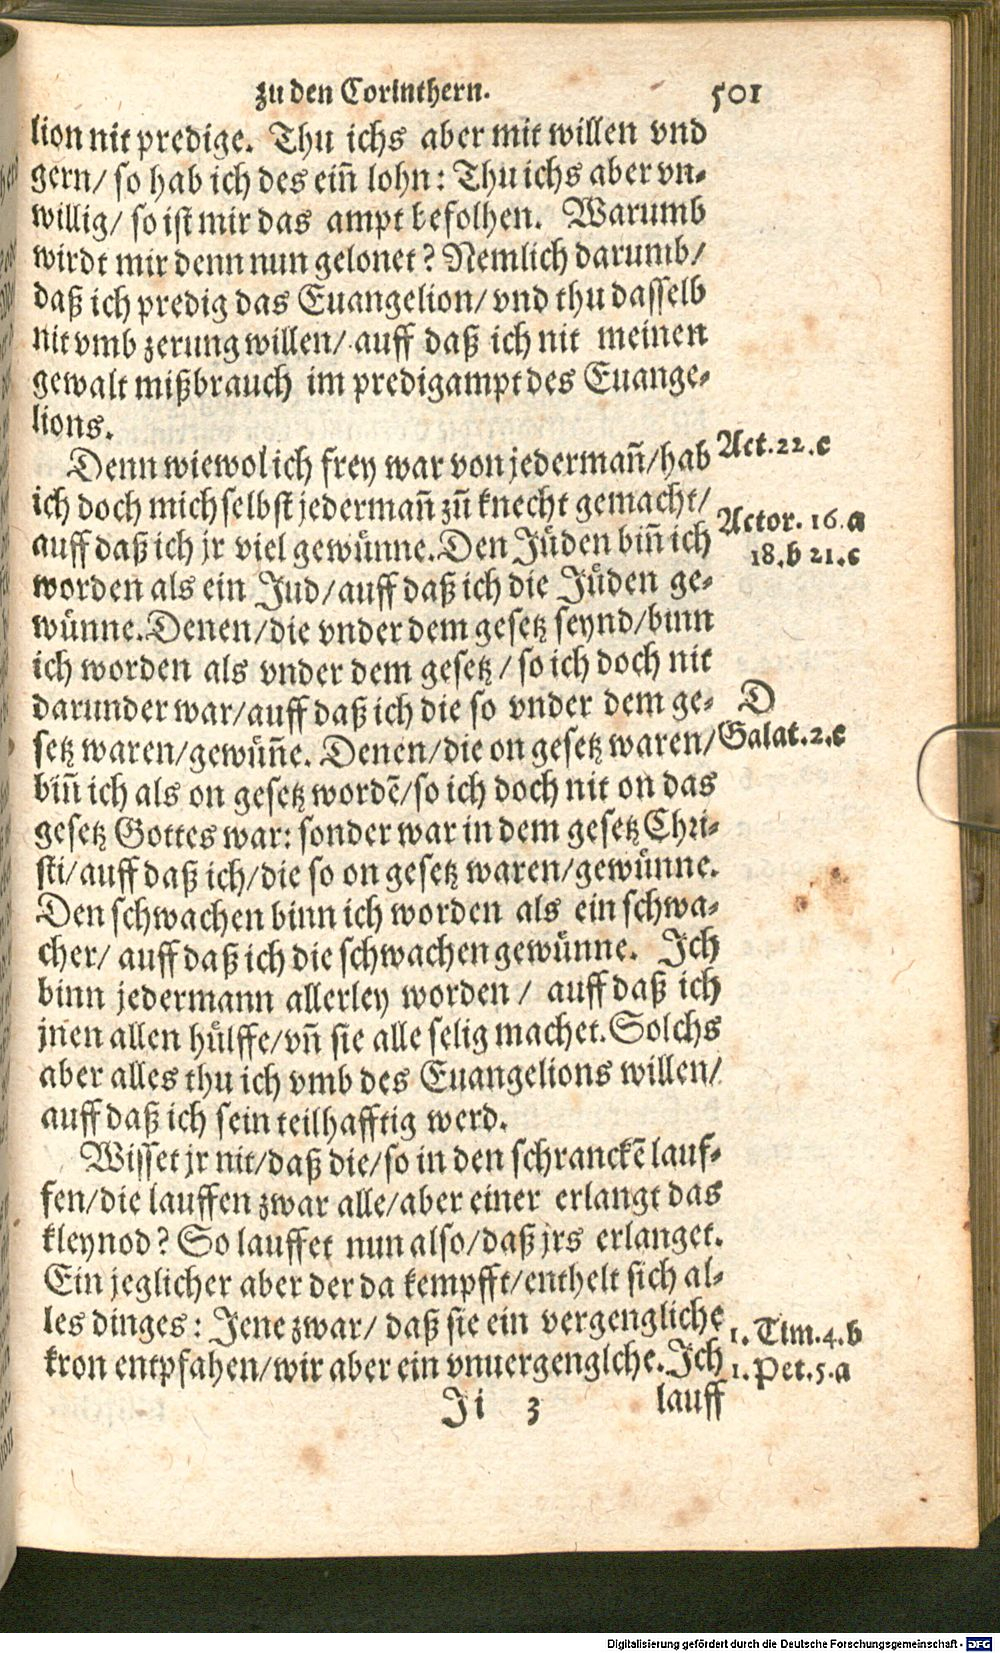 zu den Corinthern. 501
lion nit predige. Thu ichs aber mit willen vnd
gern/ so hab ich des eiñ lohn: Thu ichs aber vn-
willig/ so ist mir das ampt befolhen. Warumb
wirdt mir denn nun gelonet? Nemlich darumb/
daß ich predig das Euangelion/ vnd thu dasselb
nit vmb zerung willen/ auff daß ich nit meinen
gewalt mißbrauch im predigampt des Euange-
lions.
Denn wiewol ich frey war von jedermañ/ hab
Act. 22. c
ich doch mich selbst jedermañ zů knecht gemacht/
Actor. 16. a
auff daß ich jr viel gewünne. Den Jüden biñ ich
18. b 21. c
worden als ein Jud/ auff daß ich die Jüden ge-
wünne. Denen/ die vnder dem gesetz seynd/ binn
ich worden als vnder dem gesetz/ so ich doch nit
darunder war/ auff daß ich die so vnder dem ge-
D
setz waren/ gewüñe. Denen/ die on gesetz waren/
Galat. 2. c
biñ ich als on gesetz wordē/ so ich doch nit on das
gesetz Gottes war: sonder war in dem gesetz Chri-
sti/ auff daß ich/ die so on gesetz waren/ gewünne.
Den schwachen binn ich worden als ein schwa-
cher/ auff daß ich die schwachen gewünne. Ich
binn jedermann allerley worden/ auff daß ich
jnen allen hülffe/ vñ sie alle selig machet. Solchs
aber alles thu ich vmb des Euangelions willen/
auff daß ich sein teilhafftig werd.
Wisset jr nit/ daß die/ so in den schranckē lauf-
fen/ die lauffen zwar alle/ aber einer erlangt das
kleynod? So lauffet nun also/ daß jrs erlanget.
Ein jeglicher aber der da kempfft/ enthelt sich al-
les dinges: Jene zwar/ daß sie ein vergengliche
1. Tim. 4. b
kron entpfahen/ wir aber ein vnuergenglche. Ich
1. Pet. 5. a
Ji 3 lauff
Digitalisierung gefördert durch die Deutsche Forschungsgemeinschaft - DFG